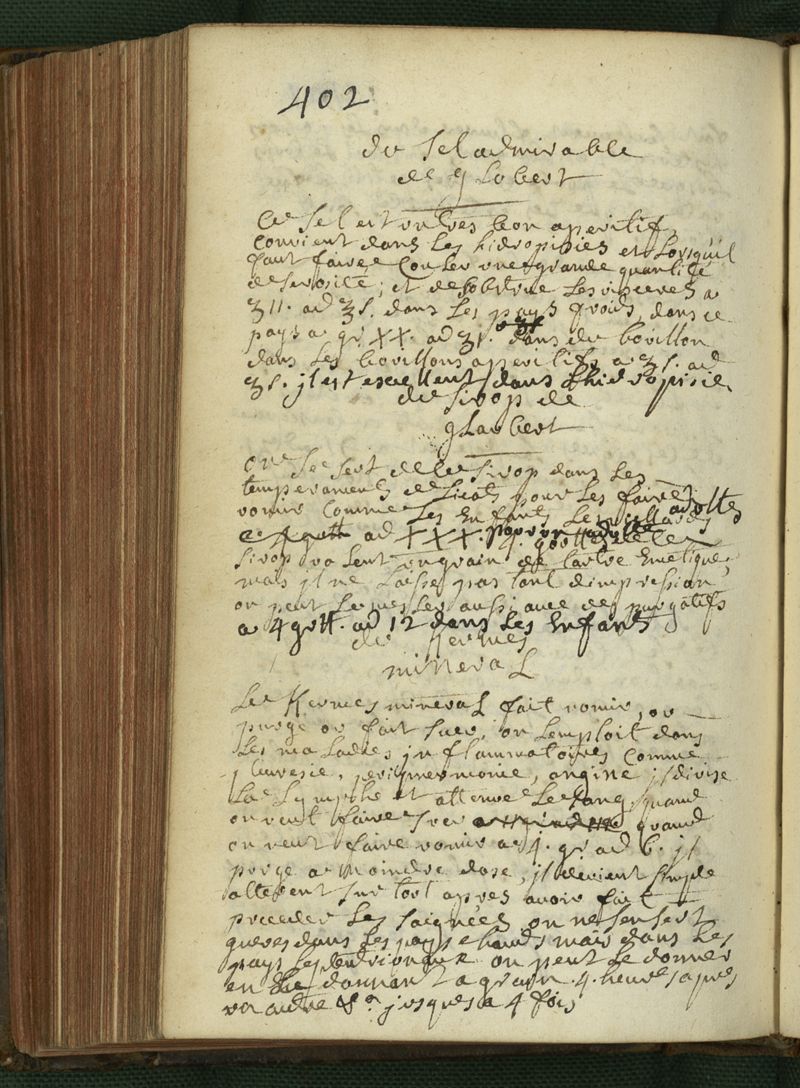 402
du Sel admirable
de globert
Ce Sel est un tres bon aperitif,
convient dans les hidropisies et Lorsquil
faut faire Couler une grande quantité
de serosité; et desobstrue Les visceres a
ʒ11. ad ℥s. dans Les pays froids, dans ce
pays a gr. XX. ad ʒ1. dans du bouillon
dans Les bouillons aperitifs a ʒs. ad
jl est excellent dans Lhidropisie
du Sirop de
glaubert
on Se Sert de Ce Sirop dans Les
temperaments delicats pour Les faire
vomir Comme Les Enfants Les vieillards
ad XXX. pour un adulte
Sirop valent un grain de tartre Emetique,
mais jl ne Laisse pas tant dimpression,
on peut Le mesler aussi avec des purgatifs
a 4 gutt. ad 12 dans Les Enfans
du Kermes
mineral
Le Kermes mineral fait vomir, ou
purge ou fait suer, on Lemploit dans
Les maladies jnflammatoires Comme
pleuresie, peripneumonie, angine jl divise
La Lymphe et attenue Le sang, quand
on veut faire suer quand
on veut faire vomir a 4. gr. ad 6. jl
purge a moindre dose, jl devient simple
alterent sur tout apres avoir fait
preceder Les saignées on ne sen sert
gueres dans Les pays chauds mais dans Les
pays septentrionaux on peut Le donner
en donnant a grain .4. heures apres
un autre jusques a 4 fois